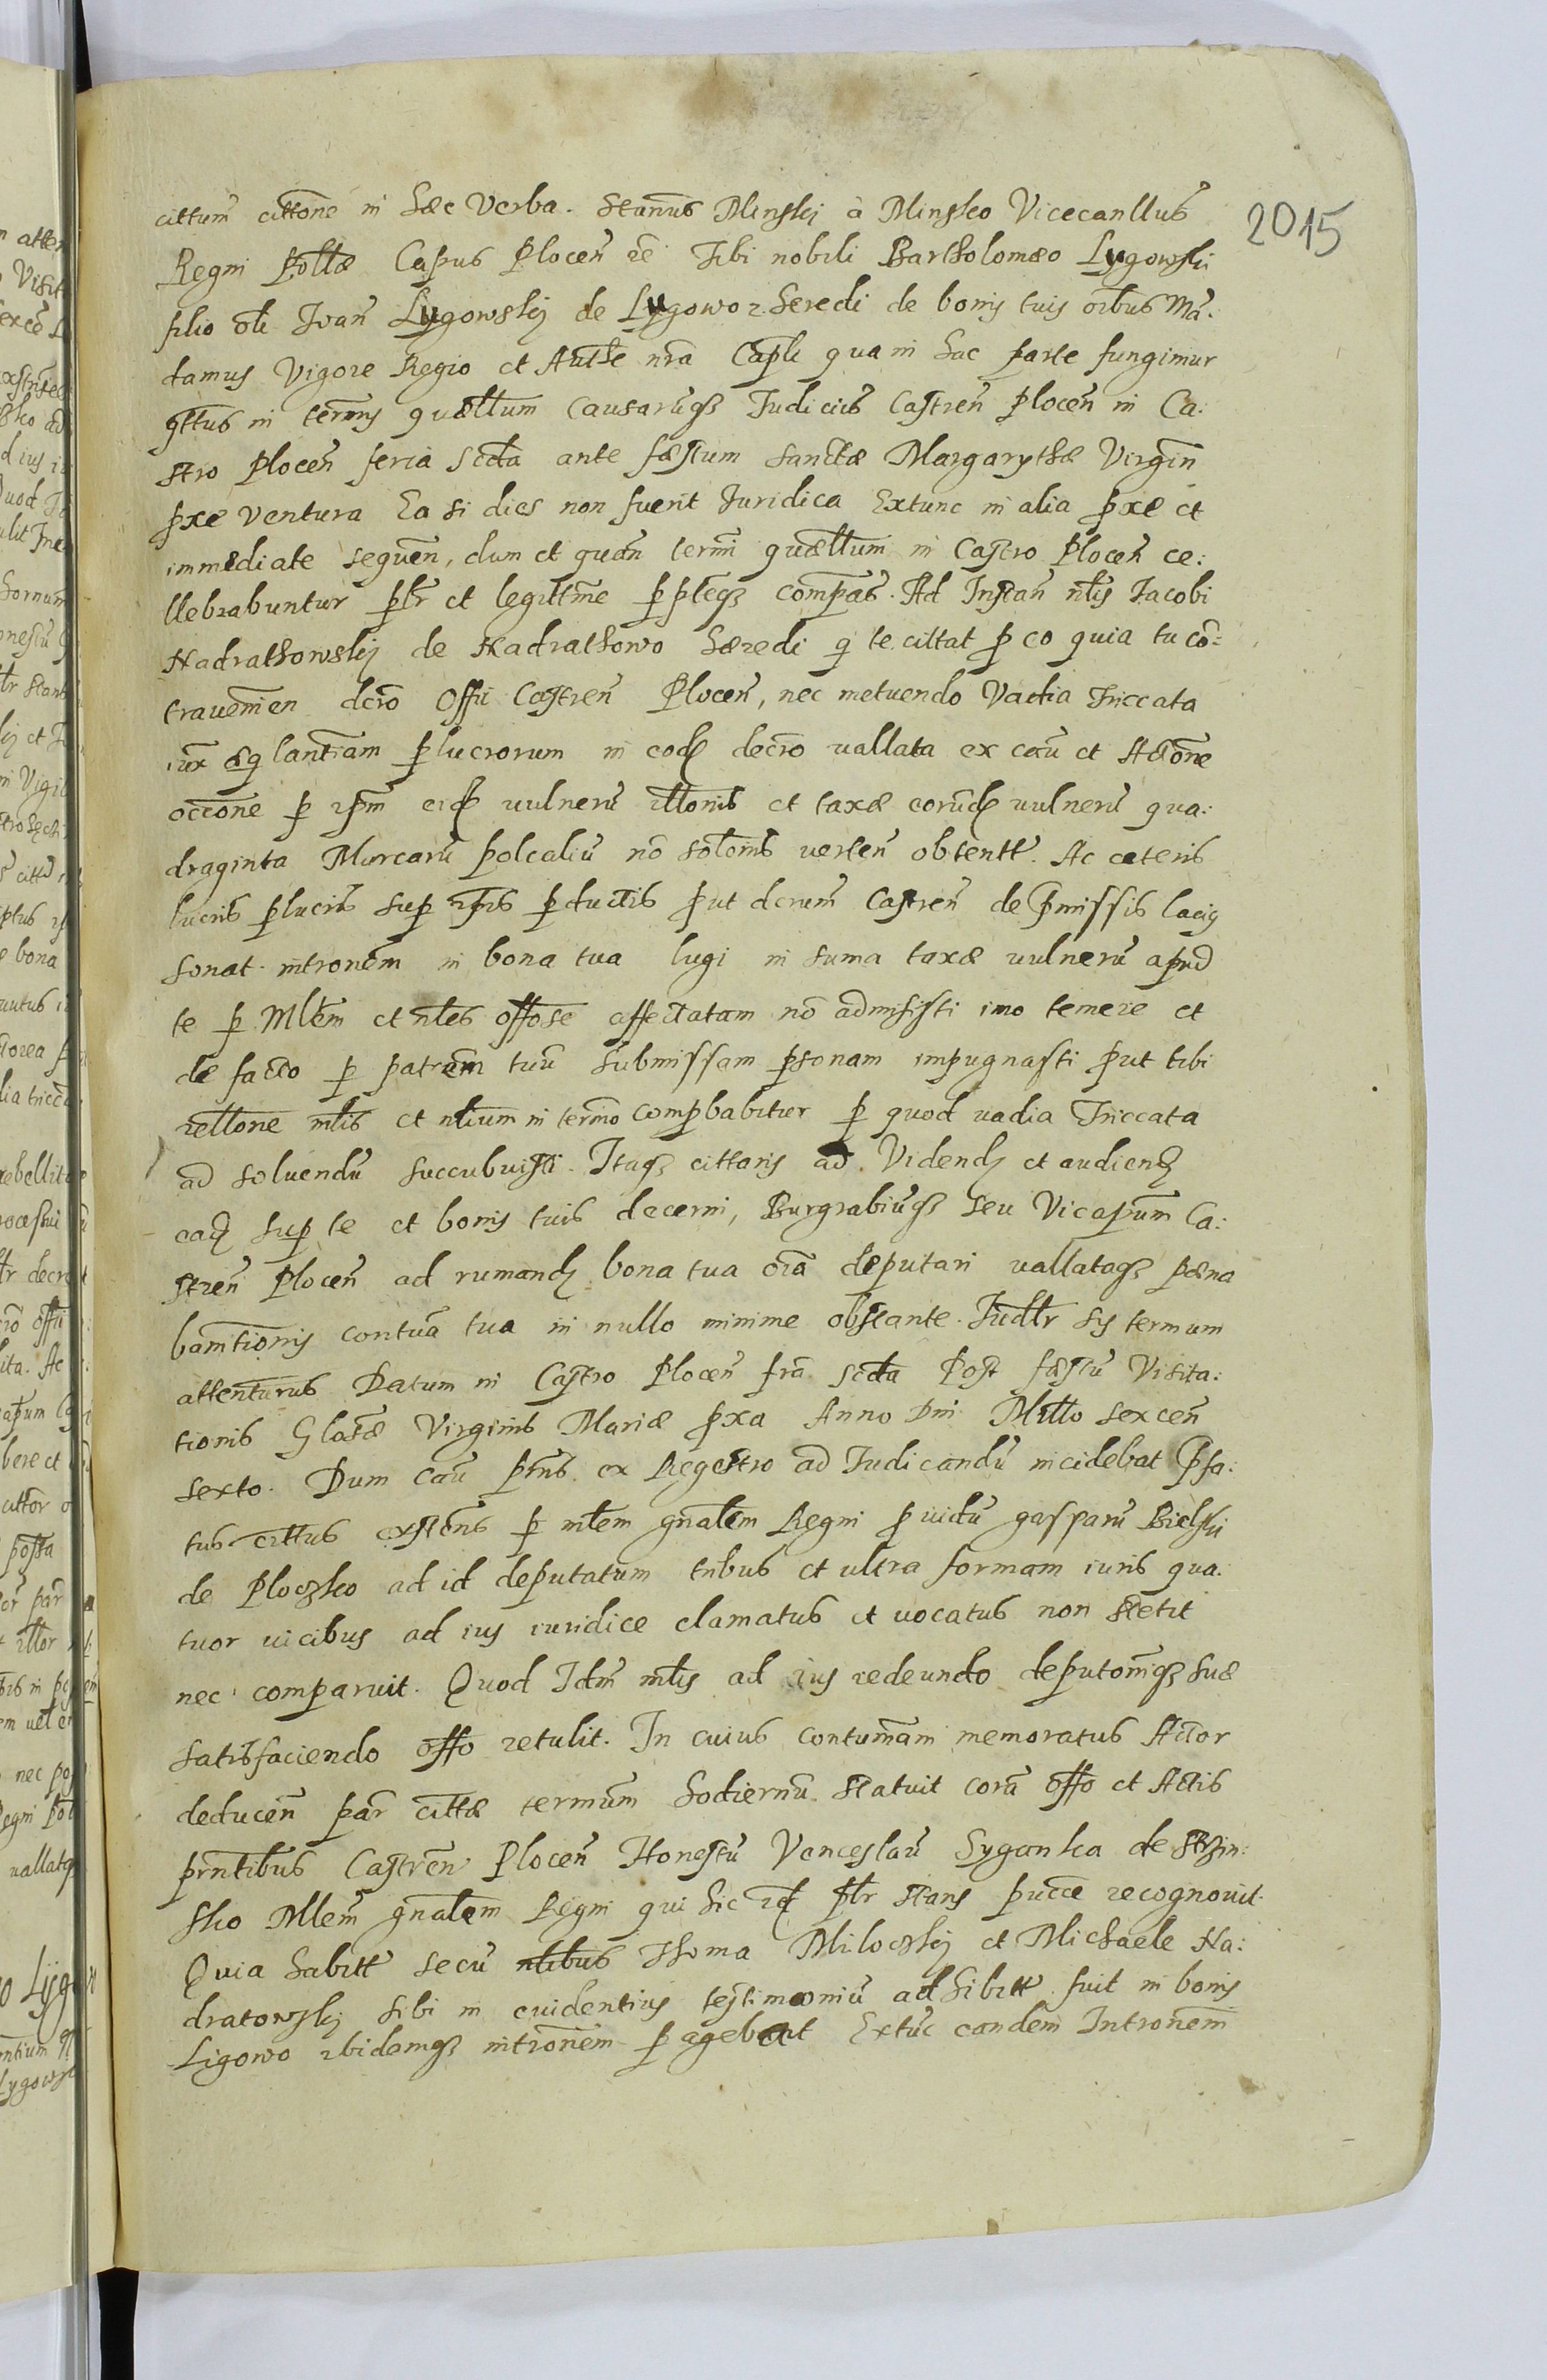 2015
cittum cittone in hæc verba. Stanus Minskj à Minsko Vicecanllus
Regni Pollæ Capus Plocen̄ rē Tibi nobili Bartholomæo Lygowski
filio oli Joan̄ Lygowskj de Lygowo z. heredi de bonis tuis oībus Mā:
damus Vigore Regio et Authe nrā Capli qua in hac parte fungimur
qttus in termis quællum causarūqꝫ Judiciū Castren̄ Plocen̄ in Ca:
stro Plocen̄ feria scda ante fæstum Sanctæ Margarythæ Virgin̄
pxe Ventura Ea si dies non fuerit Juridica Extunc in alia pxe et
immediate sequen̄, dum et quan̄ termi quællum in Castro Plocen̄ ce:
llebrabuntur plr et legittme pptēqꝫ compas. Ad Instan̄ nlis Jacobi
Nadrathowskj de Nadrathowo hæredi qi te cittat p eo quia tu cō:
traveniēn dcrō Offii Castren̄ Plocen̄, nec metuendo Vadia Triccata
lantiam plucrorum in eodē decrō vallata ex caū et Actōne
occione p ipm eidē vulnerū illōnis et taxæ eorūdē vulnerū qua:
draginta Marcarū polcaliū nō solōnis verten̄ obtentt. Ac cæteris
lucris plucris sup ipis pductis put dcrum Castren̄ de Pmissis laciꝫ
sonat. intronēm in bona tua lugi in suma taxæ vulnerū apud
te p Mlēm et nlēs offose affectatam nō admisisti imo temere et
de facto p patrem tuū submissam psonam impugnasti put tibi
rellone mlis et nlium in termo compbabitur p quod vadia Triccata
ad solvendū succubuisti. Itaqꝫ cittaris ad Videndꝫ et audiendꝫ
eadꝫ sup te et bonis tuis decerni, Burgrabiūqꝫ seu Vicapum Ca:
stren̄ Plocen̄ ad rumandꝫ bona tua oīa deputari vallatāqꝫ pæna
bannitionis contuā tua in nullo minime obstante. Judlr sis termum
attenturus Datum in Castro Plocen̄ frā scda Post fæstū Visita:
tionis Glosæ Virginis Mariæ pxa Anno Dni Millo sexcen̄
sexto. Dum caū pns ex Regestro ad Judicandū incidebat Pfa:
tus cittus extens p mlem gnalem Regni pvidū gasparū Bielski
de Ploczko ad id deputatum tribus et ultra formam iuris qua:
tuor vicibus ad ius iuridice clamatus et vocatus non stetit
nec comparuit. Quod Idm mlis ad ius redeundo deputōniqꝫ suæ
satisfaciendo offo retulit. In cuius contumam memoratus Actor
deducen̄ par cittæ termum hodiernū statuit corā offo et Actis
prntibus Castren̄ Plocen̄ Honestū Venceslaū Syganka de Strzin:
sko Mlem gnalem Regni qui hic ad plr stans pucce recognovit.
Quia habitt secū nlibus Thoma Miloczkj et Michaele Na:
dratowskj sibi in evidentius testimoniū adhibitt fuit in bonis
Ligowo ibidemqꝫ intronem p agebat Extūc eandem Intronem